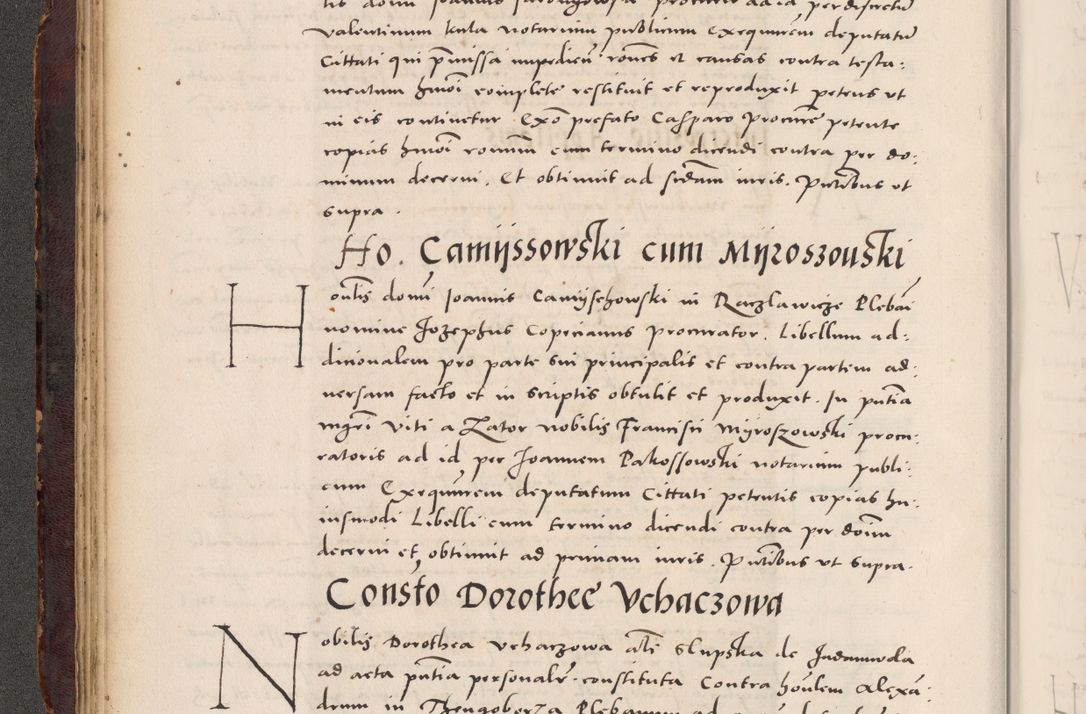 valentinum kula notarium publicum Exequutem deputatum
Cittati qui pmissa impedien rones et causas contra testa:
mentum hmoi complete restituit et reproduxit petens ut
in eis continetur. Exo prefato Casparo Procure petente
copias hmoi ronum cum termino dicendi contra per do:
minum decerni. Et obtinuit ad sedam iuris. Pntibus ut
supra.
Ho. Camijssowski cum Mijroszouski
Honlis domi Joannis Camijschowski in Raczlawicze Plebani
nomine Jozephus Coprcianus Procurator. Libellum ad:
dicionalem pro parte sui principalis et contra partem ad:
versam facto et in scriptis obtulit et produxit. In pntia
mgri Viti a Zator nobilis Francisci Mijroszowski procu:
ratoris ad id per Joannem Pakossowski notarium publi:
cum Exequutem deputatum Cittati petentis copias hu:
iusmodi Libelli cum termino dicendi contra per doim
decerni et obtinuit ad primam iuris. Pntibus ut supra.
Consto Dorothee Vchaczowa
Nobilis Dorothea vchaczowa als Slupska de Jadamwola
ad acta pntia personalr constituta Contra honlem Alexa: